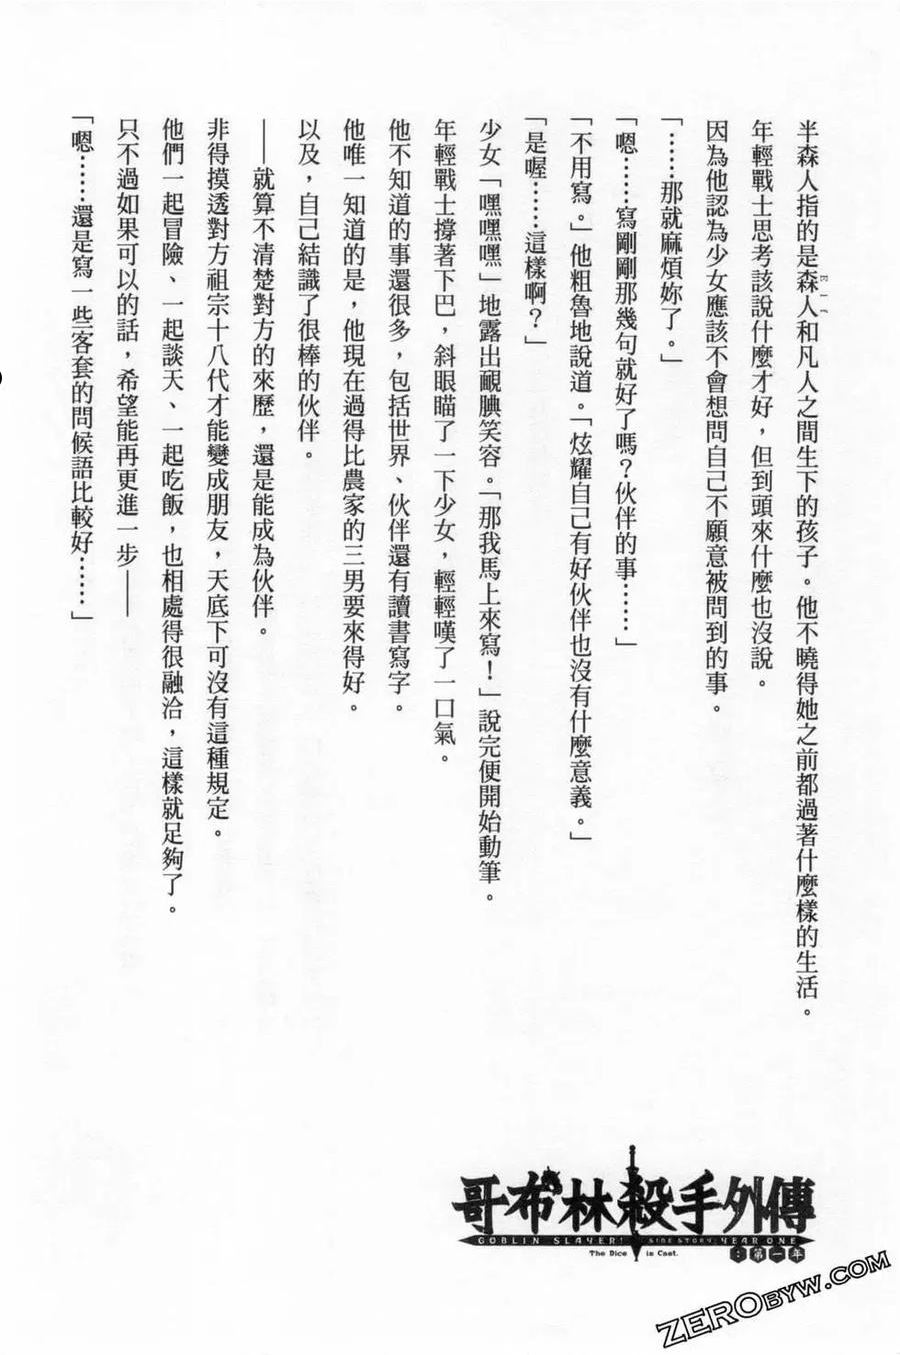 半森人指的是森人和凡人之間生下的孩子。他不曉得她之前都過著什麼樣的生活。
年輕戰士思考該說什麼才好，但到頭來什麼也沒說。
因為他認為少女應該不會想問自己不願意被問到的事。
「……那就麻煩妳了。」
「嗯……寫剛剛那幾句就好了嗎？伙伴的事……」
「不用寫。」他粗魯地說道。「炫耀自己有好伙伴也沒有什麼意義。」
「是喔……這樣啊？」
少女「嘿嘿嘿」地露出靦腆笑容。「那我馬上來寫！」說完便開始動筆。
年輕戰士撐著下巴，斜眼瞄了一下少女，輕輕嘆了一口氣。
他不知道的事還很多，包括世界、伙伴還有讀書寫字。
他唯一知道的是，他現在過得比農家的三男要來得好。
以及，自己結識了很棒的伙伴。
——就算不清楚對方的來歷，還是能成為伙伴。
非得摸透對方祖宗十八代才能變成朋友，天底下可沒有這種規定。
他們一起冒險、一起談天、一起吃飯，也相處得很融洽，這樣就足夠了。
只不過如果可以的話，希望能再更進一步——
「嗯……還是寫一些客套的問候語比較好……」
哥布林殺手外傳
GOBLIN SLAYER! SIDE STORY: YEAR ONE
The Dice is Cast.
：第一年
ZEROBYW.COM